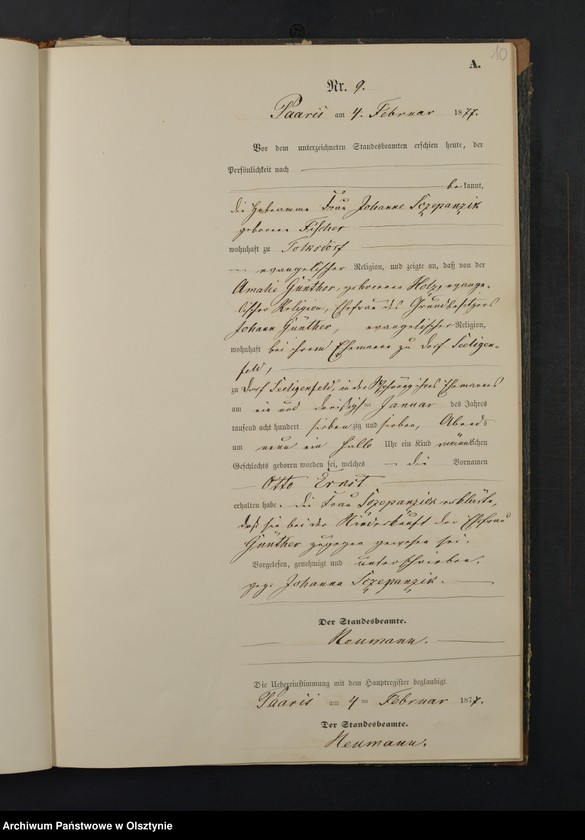 10
A.
Nr. 9.
Paaris am 4. Februar 1877.
Vor dem unterzeichneten Standesbeamten erschien heute, der
Persönlichkeit nach
bekannt,
die Hebamme Frau Johanne Sczepanzik
geborene Fischer
wohnhaft zu Tolksdorf
evangelischer Religion, und zeigte an, daß von der
Amalie Günther, geborenen Holz, evange-
lischer Religion, Ehefrau des Grundbesitzers
Johann Günther, evangelischer Religion,
wohnhaft bei ihrem Ehemanne zu Dorf Seeligen-
feld,
zu Dorf Seeligenfeld, in der Wohnung ihres Ehemannes
am ein und dreißigsten Januar des Jahres
tausend acht hundert siebenzig und sieben, Abends
um neun ein halb Uhr ein Kind männlichen
Geschlechts geboren worden sei, welches die Vornamen
Otto Ernst
erhalten habe. Die Frau Sczepanzik erklärte,
daß sie bei der Niederkunft der Ehefrau
Günther zugegen gewesen sei.
Vorgelesen, genehmigt und unterschrieben.
gez. Johanna Sczepanzik.
Der Standesbeamte.
Neumann.
Die Uebereinstimmung mit dem Hauptregister beglaubigt
Paaris am 4 ten Februar 1877.
Der Standesbeamte.
Neumann.
Archiwum Państwowe w Olsztynie